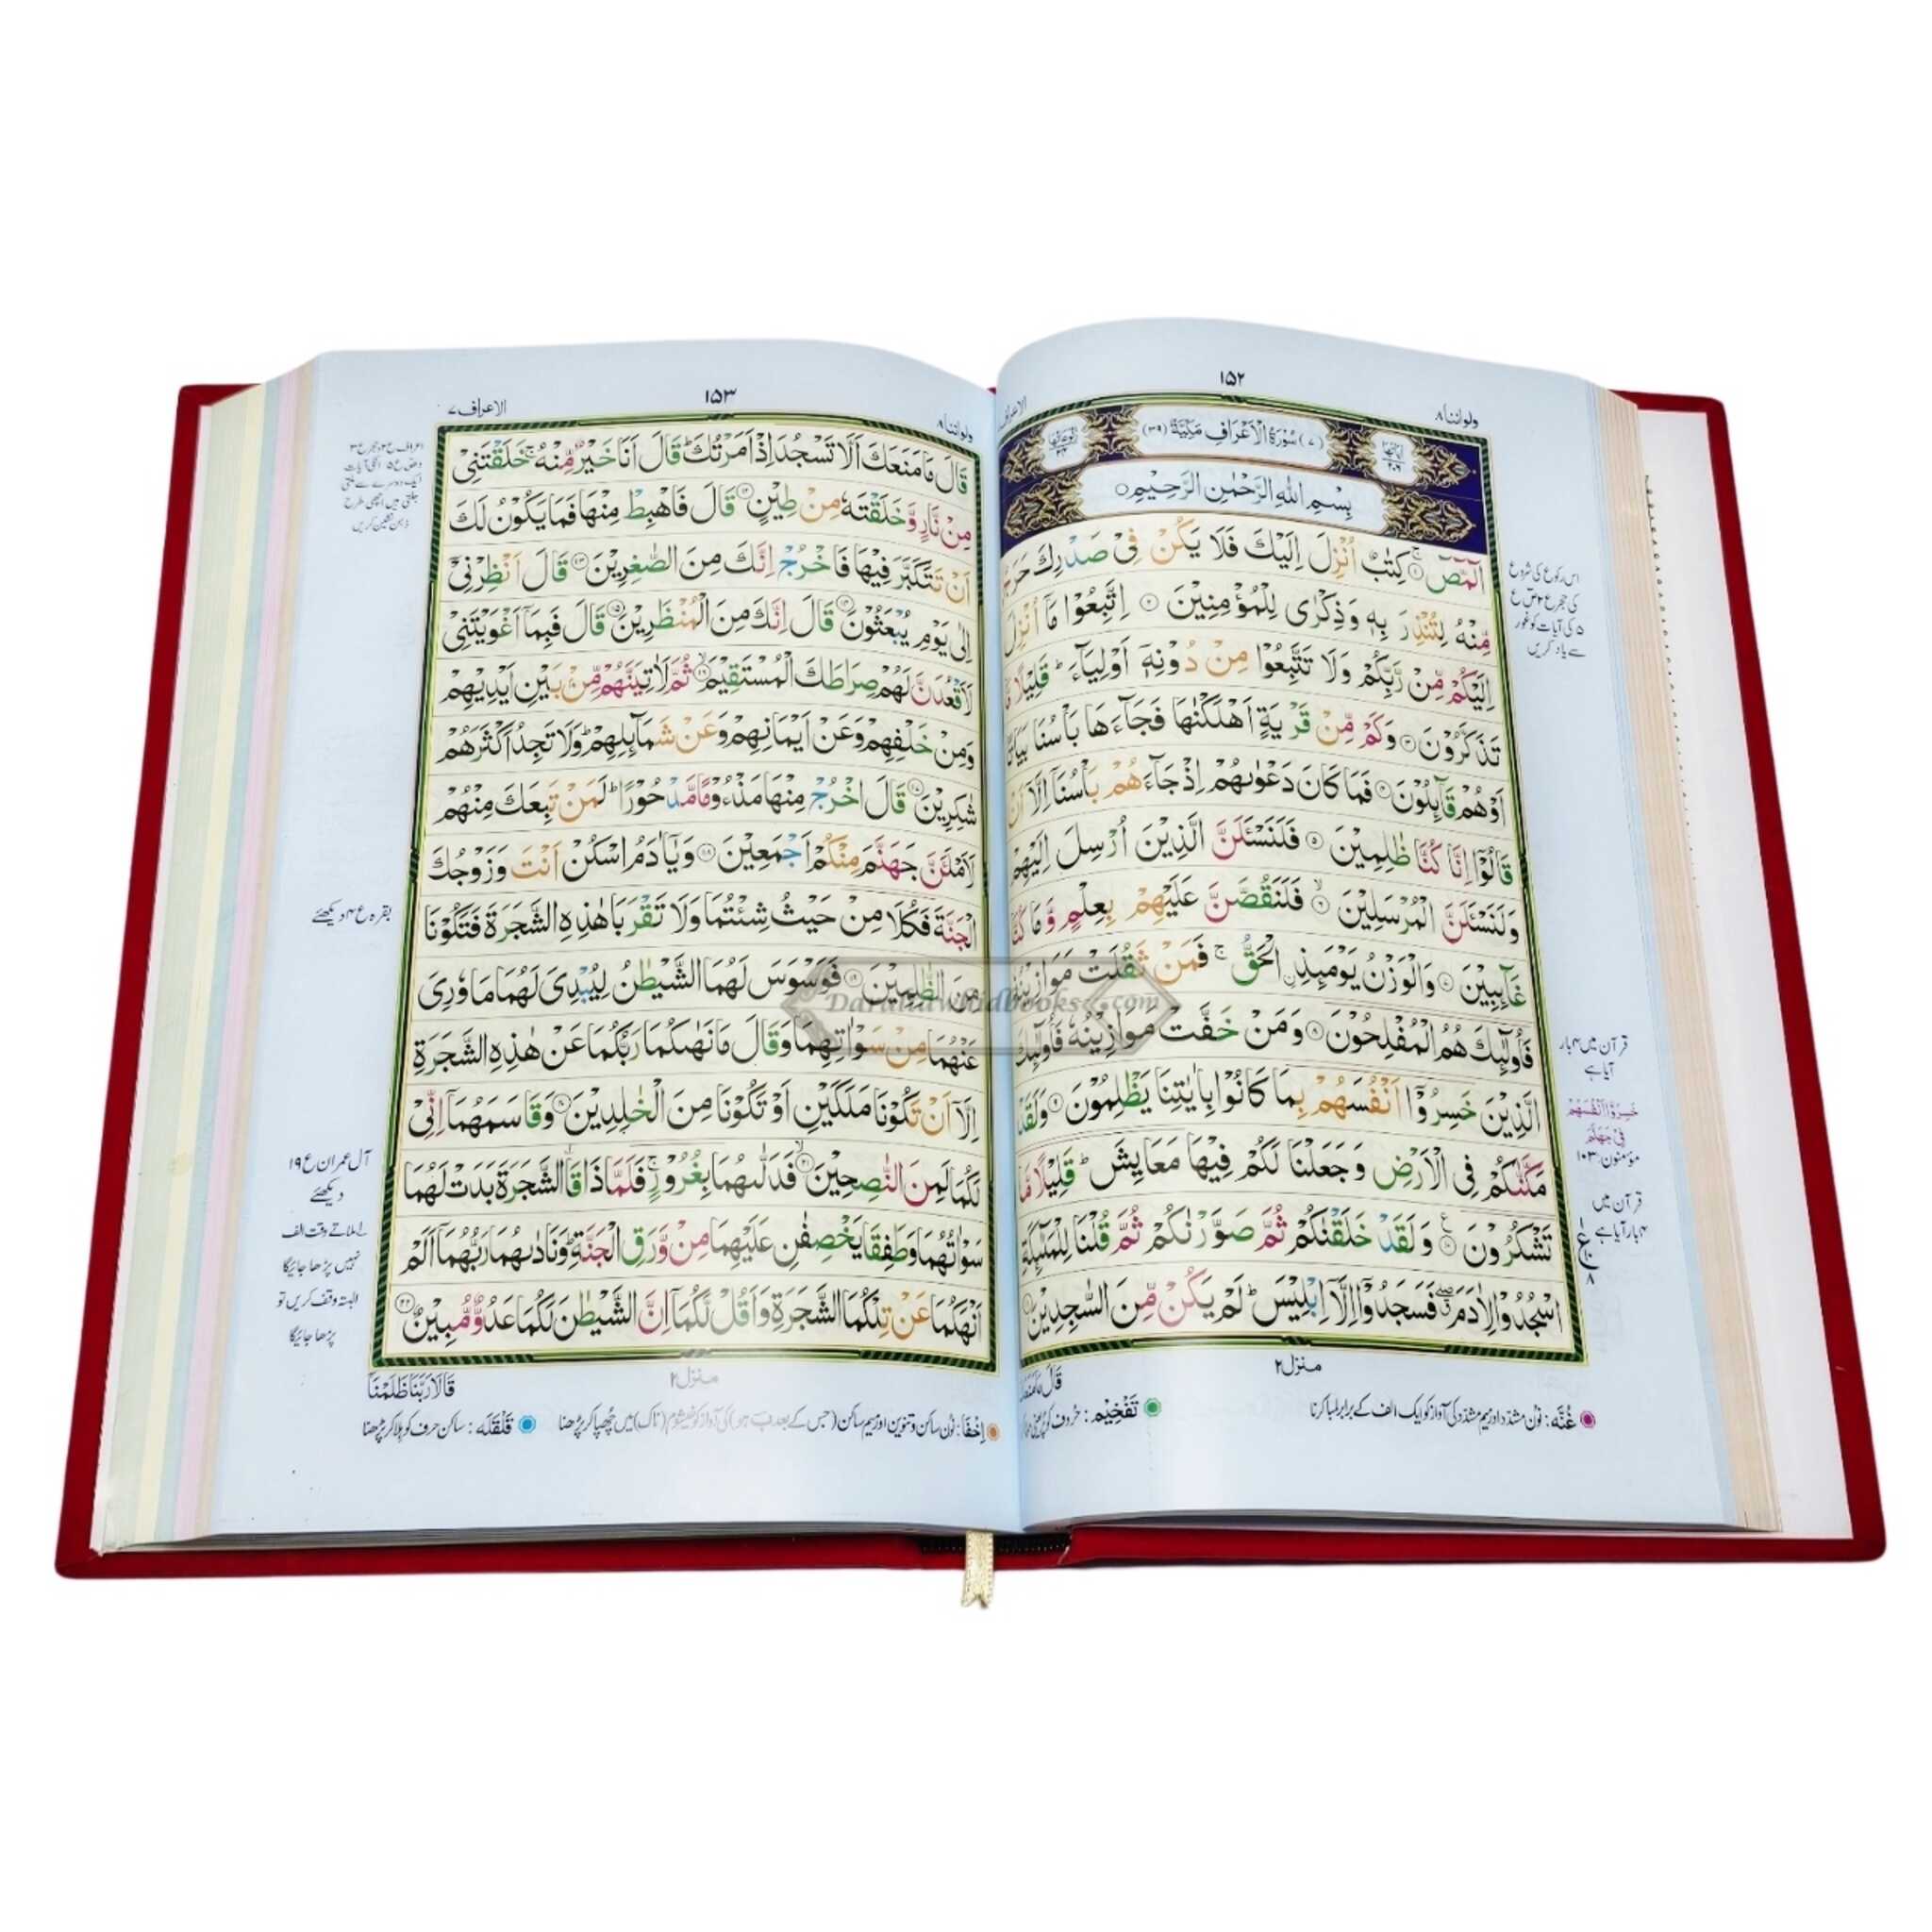 ولواننا ۸
۱۵۲
(۷) سُوْرَةُ الْاَعْرَافِ مَكِّيَّةٌ (۳۹)
بِسْمِ اللّٰهِ الرَّحْمٰنِ الرَّحِيْمِ
الٓمّٓصٓ ۚ ۱ كِتٰبٌ اُنْزِلَ اِلَيْكَ فَلَا يَكُنْ فِيْ صَدْرِكَ حَرَجٌ
مِّنْهُ لِتُنْذِرَ بِهٖ وَذِكْرٰى لِلْمُؤْمِنِيْنَ ۲ اِتَّبِعُوْا مَآ اُنْزِلَ
اِلَيْكُمْ مِّنْ رَّبِّكُمْ وَلَا تَتَّبِعُوْا مِنْ دُوْنِهٖٓ اَوْلِيَآءَ ؕ قَلِيْلًا مَّا
تَذَكَّرُوْنَ ۳ وَكَمْ مِّنْ قَرْيَةٍ اَهْلَكْنٰهَا فَجَآءَهَا بَاْسُنَا بَيَاتًا
اَوْهُمْ قَآئِلُوْنَ ۴ فَمَا كَانَ دَعْوٰىهُمْ اِذْ جَآءَهُمْ بَاْسُنَآ اِلَّآ اَنْ
قَالُوْٓا اِنَّا كُنَّا ظٰلِمِيْنَ ۵ فَلَنَسْـَٔلَنَّ الَّذِيْنَ اُرْسِلَ اِلَيْهِمْ
وَلَنَسْـَٔلَنَّ الْمُرْسَلِيْنَ ۙ ۶ فَلَنَقُصَّنَّ عَلَيْهِمْ بِعِلْمٍ وَّمَا كُنَّا
غَآئِبِيْنَ ۷ وَالْوَزْنُ يَوْمَئِذِ ِۨالْحَقُّ ۚ فَمَنْ ثَقُلَتْ مَوَازِيْنُهٗ
فَاُولٰٓئِكَ هُمُ الْمُفْلِحُوْنَ ۸ وَمَنْ خَفَّتْ مَوَازِيْنُهٗ فَاُولٰٓئِكَ
الَّذِيْنَ خَسِرُوْٓا اَنْفُسَهُمْ بِمَا كَانُوْا بِاٰيٰتِنَا يَظْلِمُوْنَ ۹ وَلَقَدْ
مَكَّنّٰكُمْ فِي الْاَرْضِ وَجَعَلْنَا لَكُمْ فِيْهَا مَعَايِشَ ؕ قَلِيْلًا مَّا
تَشْكُرُوْنَ ۱۰ وَلَقَدْ خَلَقْنٰكُمْ ثُمَّ صَوَّرْنٰكُمْ ثُمَّ قُلْنَا لِلْمَلٰٓئِكَةِ
اسْجُدُوْا لِاٰدَمَ ۖ فَسَجَدُوْٓا اِلَّآ اِبْلِيْسَ ؕ لَمْ يَكُنْ مِّنَ السّٰجِدِيْنَ ۱۱
اس رکوع کی شروع
کی حجر ع ۲ ص ع
۵ کی آیات کو غور
سے یاد کریں
قرآن میں ۴ بار
آیا ہے
خَسِرُوْٓا اَنْفُسَهُمْ
فِيْ جَهَنَّمَ
مؤمنون: ۱۰۳
قرآن میں
۴ بار آیا ہے
ع
۸
منزل ۲
غُنَّه: نون مشدد اور میم مشدد کی آواز کو ایک الف کے برابر لمبا کرنا
تَفْخِيْم: حروف کو پُر یعنی
الاعراف ۷
۱۵۳
ولواننا ۸
قَالَ مَا مَنَعَكَ اَلَّا تَسْجُدَ اِذْ اَمَرْتُكَ ؕ قَالَ اَنَا خَيْرٌ مِّنْهُ ۚ خَلَقْتَنِيْ
مِنْ نَّارٍ وَّخَلَقْتَهٗ مِنْ طِيْنٍ ۱۲ قَالَ فَاهْبِطْ مِنْهَا فَمَا يَكُوْنُ لَكَ
اَنْ تَتَكَبَّرَ فِيْهَا فَاخْرُجْ اِنَّكَ مِنَ الصّٰغِرِيْنَ ۱۳ قَالَ اَنْظِرْنِيْٓ
اِلٰى يَوْمِ يُبْعَثُوْنَ ۱۴ قَالَ اِنَّكَ مِنَ الْمُنْظَرِيْنَ ۱۵ قَالَ فَبِمَآ اَغْوَيْتَنِيْ
لَاَقْعُدَنَّ لَهُمْ صِرَاطَكَ الْمُسْتَقِيْمَ ۙ ۱۶ ثُمَّ لَاٰتِيَنَّهُمْ مِّنْۢ بَيْنِ اَيْدِيْهِمْ
وَمِنْ خَلْفِهِمْ وَعَنْ اَيْمَانِهِمْ وَعَنْ شَمَآئِلِهِمْ ؕ وَلَا تَجِدُ اَكْثَرَهُمْ
شٰكِرِيْنَ ۱۷ قَالَ اخْرُجْ مِنْهَا مَذْءُوْمًا مَّدْحُوْرًا ؕ لَمَنْ تَبِعَكَ مِنْهُمْ
لَاَمْلَـَٔنَّ جَهَنَّمَ مِنْكُمْ اَجْمَعِيْنَ ۱۸ وَيٰٓاٰدَمُ اسْكُنْ اَنْتَ وَزَوْجُكَ
الْجَنَّةَ فَكُلَا مِنْ حَيْثُ شِئْتُمَا وَلَا تَقْرَبَا هٰذِهِ الشَّجَرَةَ فَتَكُوْنَا
مِنَ الظّٰلِمِيْنَ ۱۹ فَوَسْوَسَ لَهُمَا الشَّيْطٰنُ لِيُبْدِيَ لَهُمَا مَا وٗرِيَ
عَنْهُمَا مِنْ سَوْاٰتِهِمَا وَقَالَ مَا نَهٰىكُمَا رَبُّكُمَا عَنْ هٰذِهِ الشَّجَرَةِ
اِلَّآ اَنْ تَكُوْنَا مَلَكَيْنِ اَوْ تَكُوْنَا مِنَ الْخٰلِدِيْنَ ۲۰ وَقَاسَمَهُمَآ اِنِّيْ
لَكُمَا لَمِنَ النّٰصِحِيْنَ ۙ ۲۱ فَدَلّٰىهُمَا بِغُرُوْرٍ ۚ فَلَمَّا ذَاقَا الشَّجَرَةَ بَدَتْ لَهُمَا
سَوْاٰتُهُمَا وَطَفِقَا يَخْصِفٰنِ عَلَيْهِمَا مِنْ وَّرَقِ الْجَنَّةِ ؕ وَنَادٰىهُمَا رَبُّهُمَآ اَلَمْ
اَنْهَكُمَا عَنْ تِلْكُمَا الشَّجَرَةِ وَاَقُلْ لَّكُمَآ اِنَّ الشَّيْطٰنَ لَكُمَا عَدُوٌّ مُّبِيْنٌ ۲۲
بقرہ ع ۴ دیکھئے
آل عمران ع ۱۹
دیکھئے
ملاتے وقت الف
نہیں پڑھا جائیگا
البتہ وقف کریں تو
پڑھا جائیگا
منزل ۲
قَالَا رَبَّنَا ظَلَمْنَآ
اِخْفَا: نون ساکن و تنوین اور میم ساکن (جس کے بعد ب ہو) کی آواز کو خیشوم (ناک) میں چھپا کر پڑھنا
قَلْقَلَه: ساکن حرف کو ہلا کر پڑھنا
Daruttawhidbooks.com